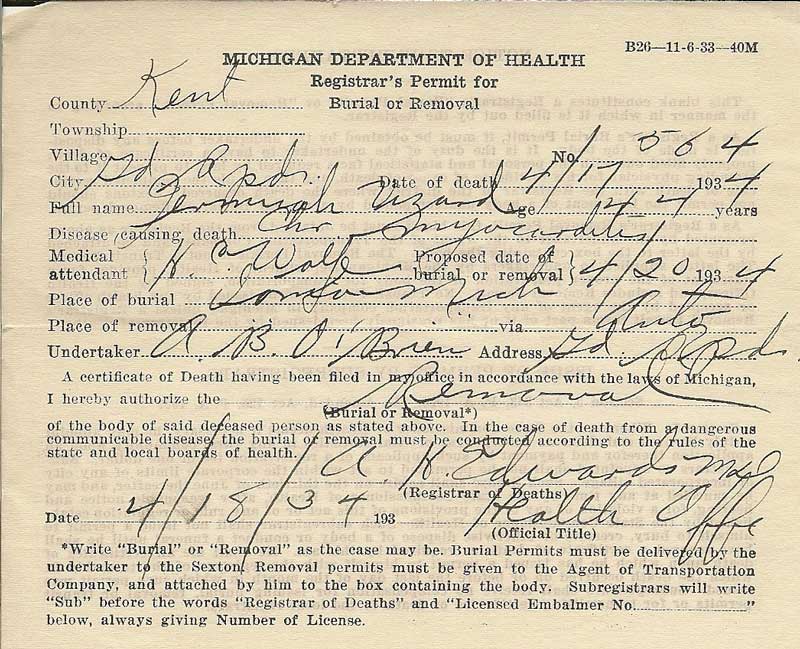 B26—11-6-33—40M
MICHIGAN DEPARTMENT OF HEALTH
Registrar's Permit for
Burial or Removal
County Kent
Township
Village
No. 564
City Gd Rpds. Date of death 4/17 1934
Full name Jermiah Age 44 years
Disease causing death Chr. Myocarditis
Medical attendant { H. C. Wolfe Proposed date of burial or removal } 4/20 1934
Place of burial Mich
Place of removal via Auto
Undertaker A. B. O'Brien Address Gd Rpds
A certificate of Death having been filed in my office in accordance with the laws of Michigan,
I hereby authorize the Removal
(Burial or Removal*)
of the body of said deceased person as stated above. In the case of death from a dangerous
communicable disease, the burial or removal must be conducted according to the rules of the
state and local boards of health.
A. H. Edwards M.D.
(Registrar of Deaths)
Date 4/18/34 193 Health Offc
(Official Title)
*Write "Burial" or "Removal" as the case may be. Burial Permits must be delivered by the
undertaker to the Sexton, Removal permits must be given to the Agent of Transportation
Company, and attached by him to the box containing the body. Subregistrars will write
"Sub" before the words "Registrar of Deaths" and "Licensed Embalmer No. "
below, always giving Number of License.